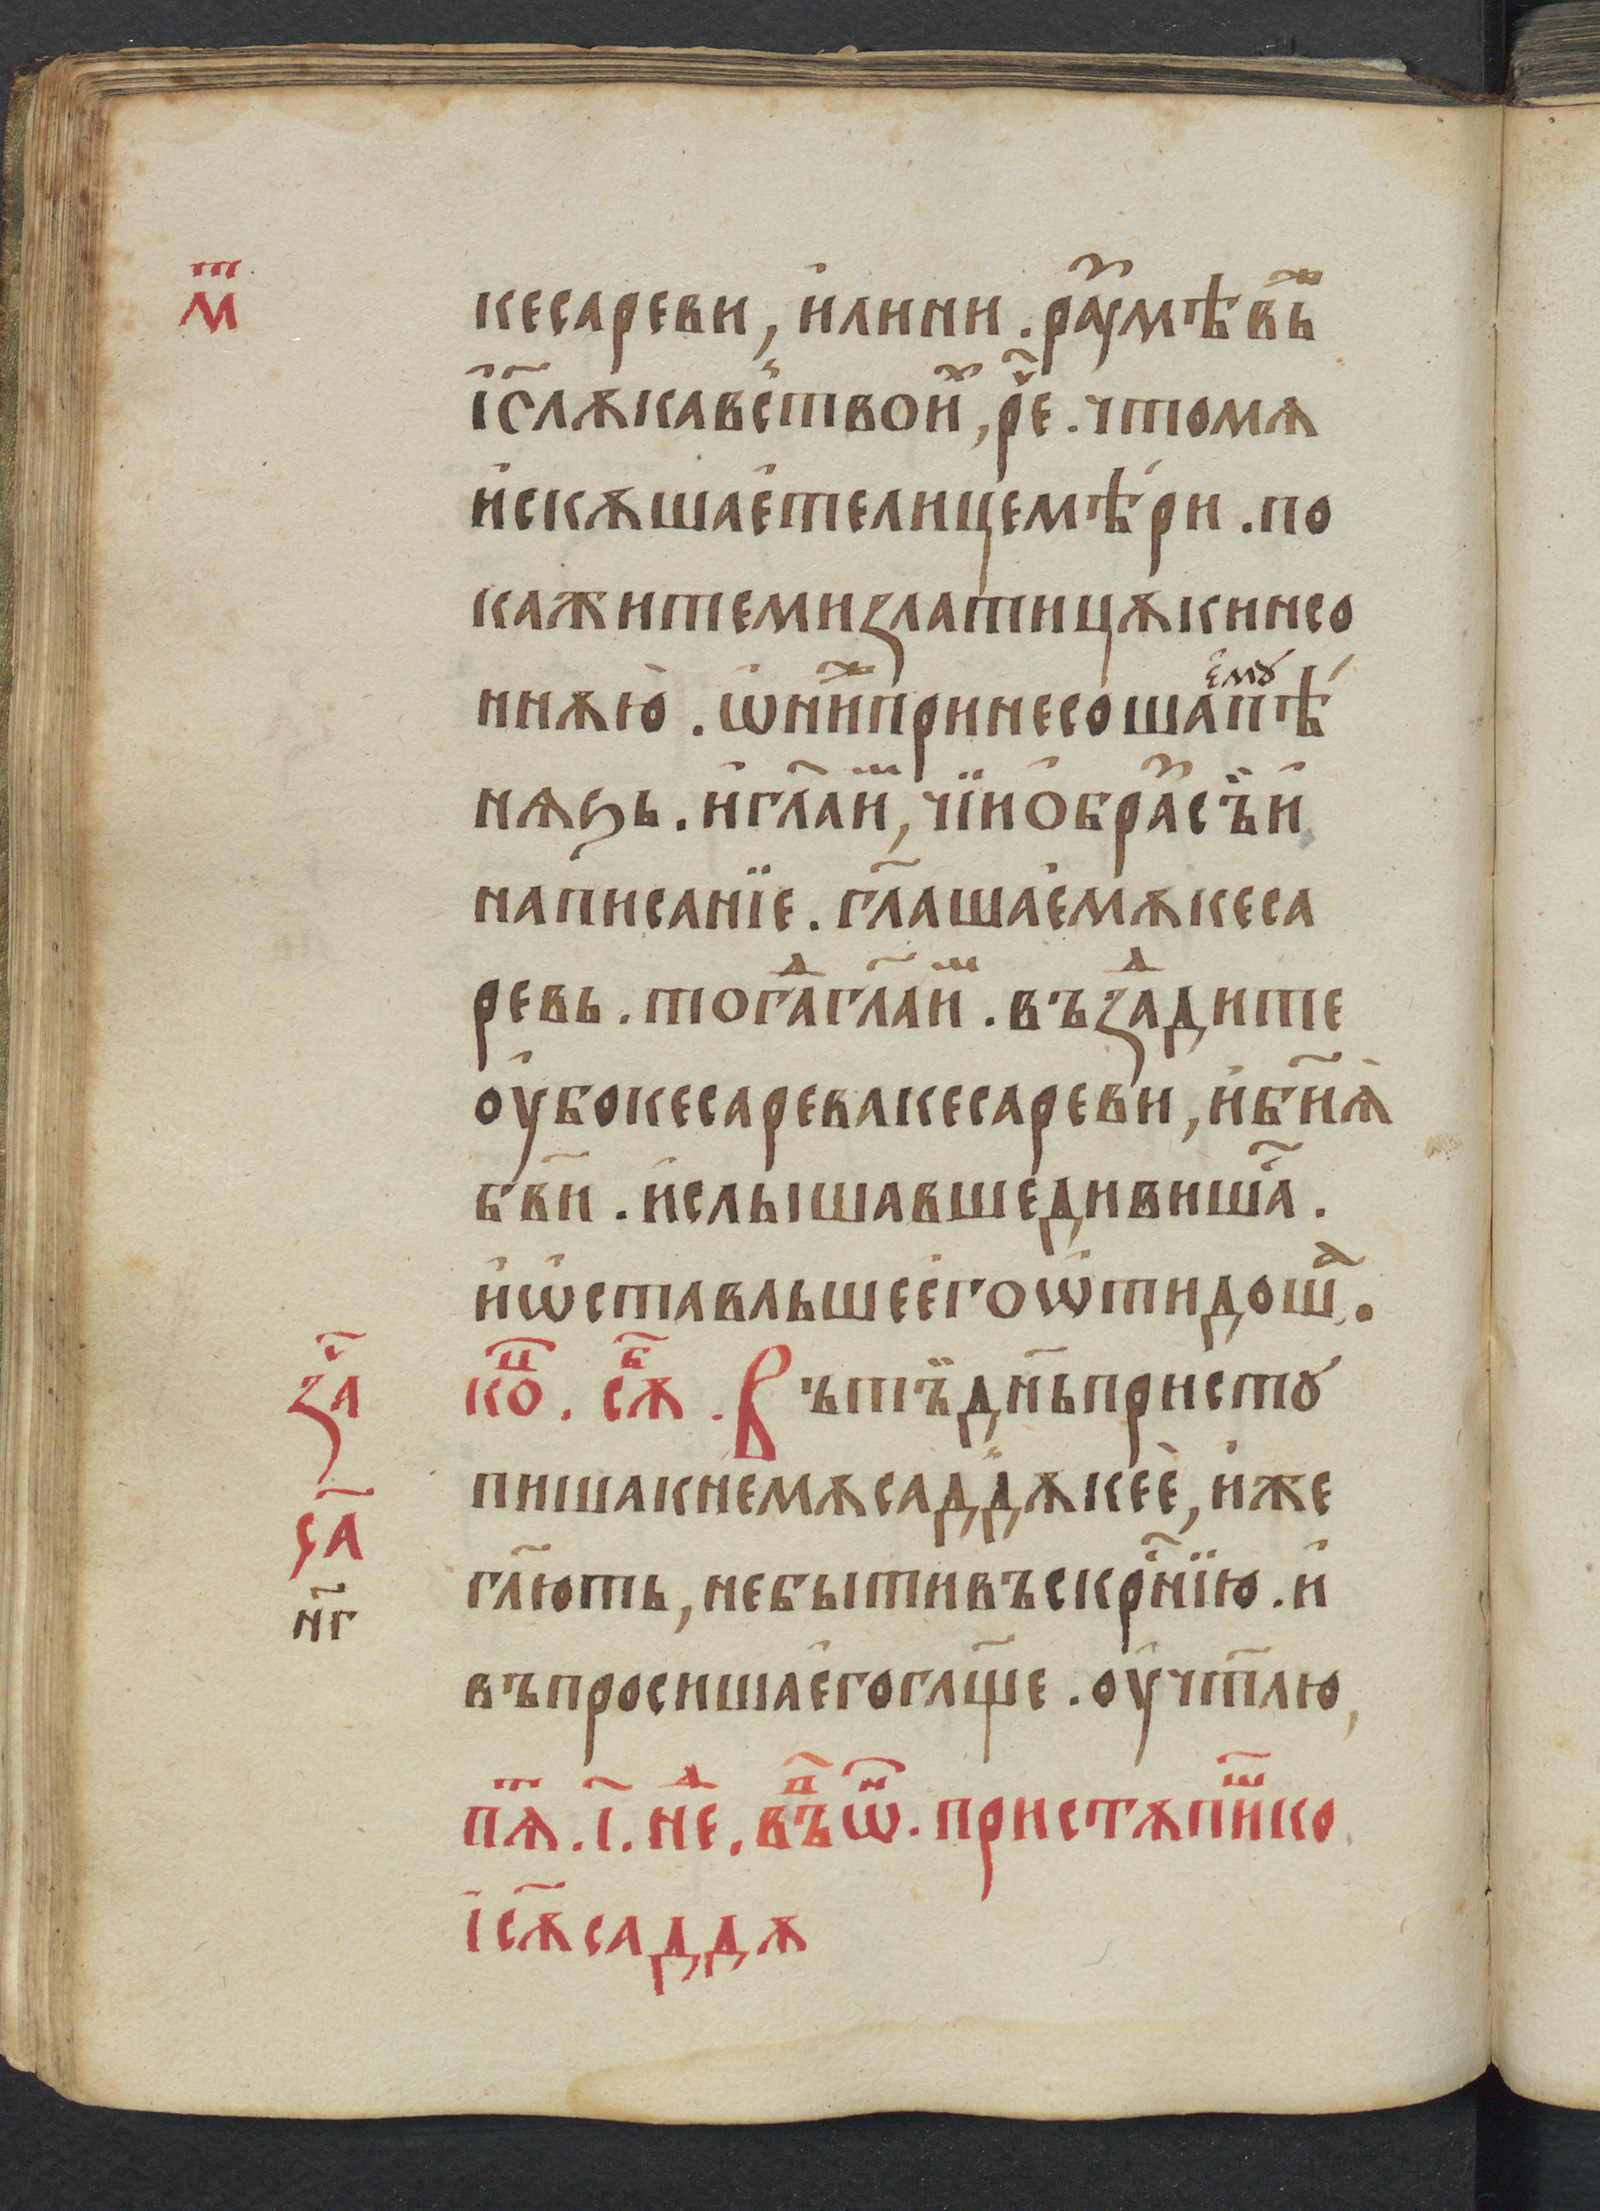 м҃т
кесареви, и҆лини . раⷥумѣвъⷤ
і҆с҃лѫкавс́твоиⷯ, рⷱ҇е . чтомѧ
и҆скѫшае҆телицемѣри . по
кажитемиꙁлатицѫкинсо
ннѫю̀ . ѡ҆ниⷤпринесошае҆мꙋпѣ́
нѧꙃь . и҆гл҃аиⷨ, чїи҆о҆браⷥсъ̈и҆
написанїе . гл҃ашае҆мѫкеса
ревь . тогаⷣгл҃аиⷨ . въꙁадⷣите
оу҆бокесаревакесареви, и҆бж҃іѧ̀
бв҃и . и҆слышавшедивишаⷭ҇ .
и҆ѡ҆ставльшее҆гоѡ҆тидошⷶ .
ꙁаⷱ҇
коⷰ . сѫⷠ . Вътъ̈дн҃ьпристꙋ́
пишакнемѫсаддѫкеѐ, и҆же
ѕ҃а
гл҃ють, небытивъскрⷭ҇нїю . и҆
н҃г
въпросишае҆гогл҃ѫще . оу҆чт҃лю,
пѫⷮ . і҃ . неⷣ . въⷫ҇ѡⷩ҇ . пристѫпиⷲко
і҆сѫ҃саддѫ